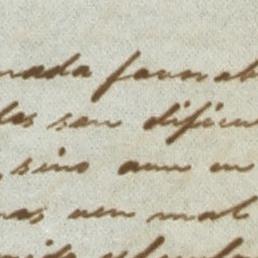 nada favorab
las son dificu
sino aun en
mas aun mal